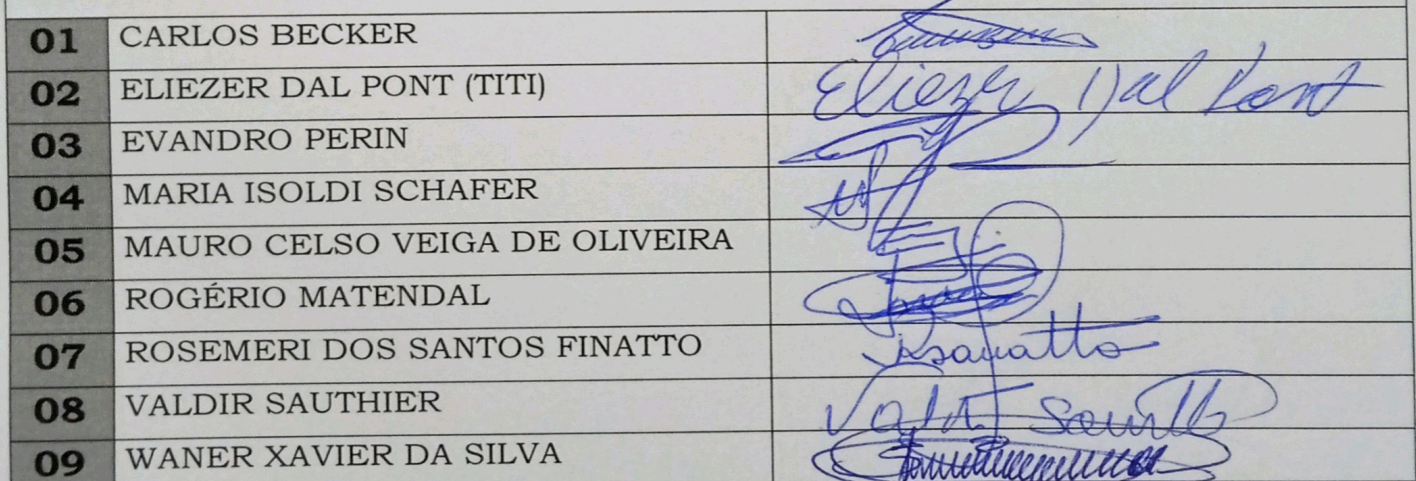 01 CARLOS BECKER
02 ELIEZER DAL PONT (TITI) Eliezer Dal Pont
03 EVANDRO PERIN
04 MARIA ISOLDI SCHAFER
05 MAURO CELSO VEIGA DE OLIVEIRA
06 ROGÉRIO MATENDAL
07 ROSEMERI DOS SANTOS FINATTO
08 VALDIR SAUTHIER
09 WANER XAVIER DA SILVA